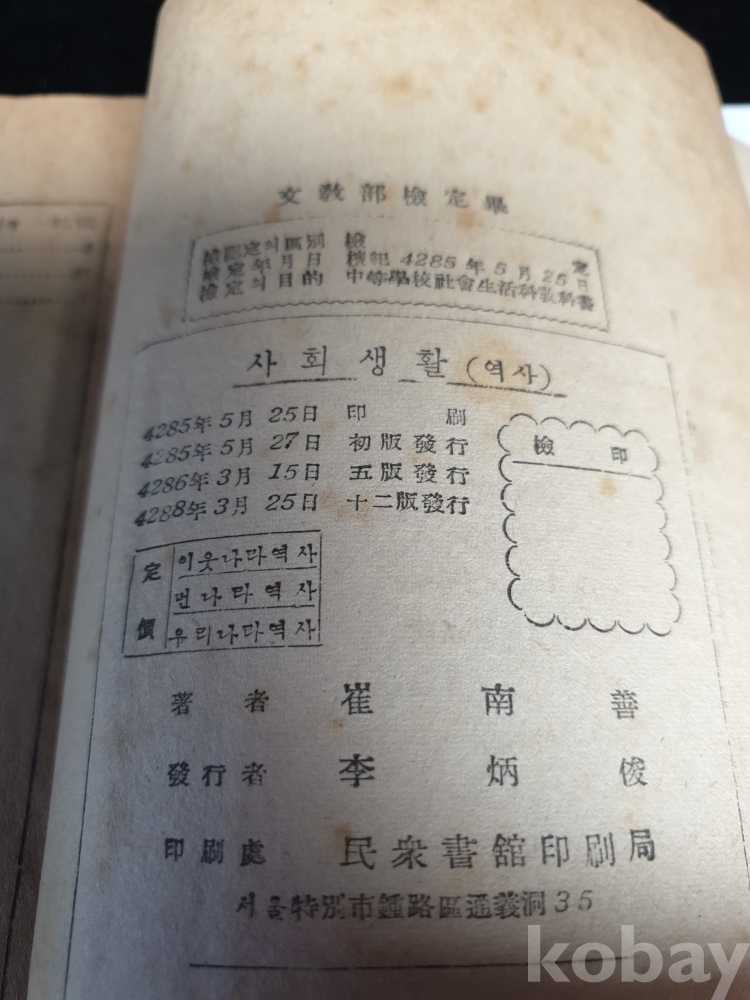 文敎部檢定畢
檢認定의區別 檢 定
檢定年月日 檀紀 4285年 5月 25日
檢定의目的 中等學校社會生活科敎科書
사회생활(역사)
4285年 5月 25日 印 刷
4285年 5月 27日 初版發行
4286年 3月 15日 五版發行
4288年 3月 25日 十二版發行
檢 印
定價
이웃나라역사
먼나라역사
우리나라역사
著者 崔南善
發行者 李炳俊
印刷處 民衆書館印刷局
서울特別市鍾路區通義洞35
kobay